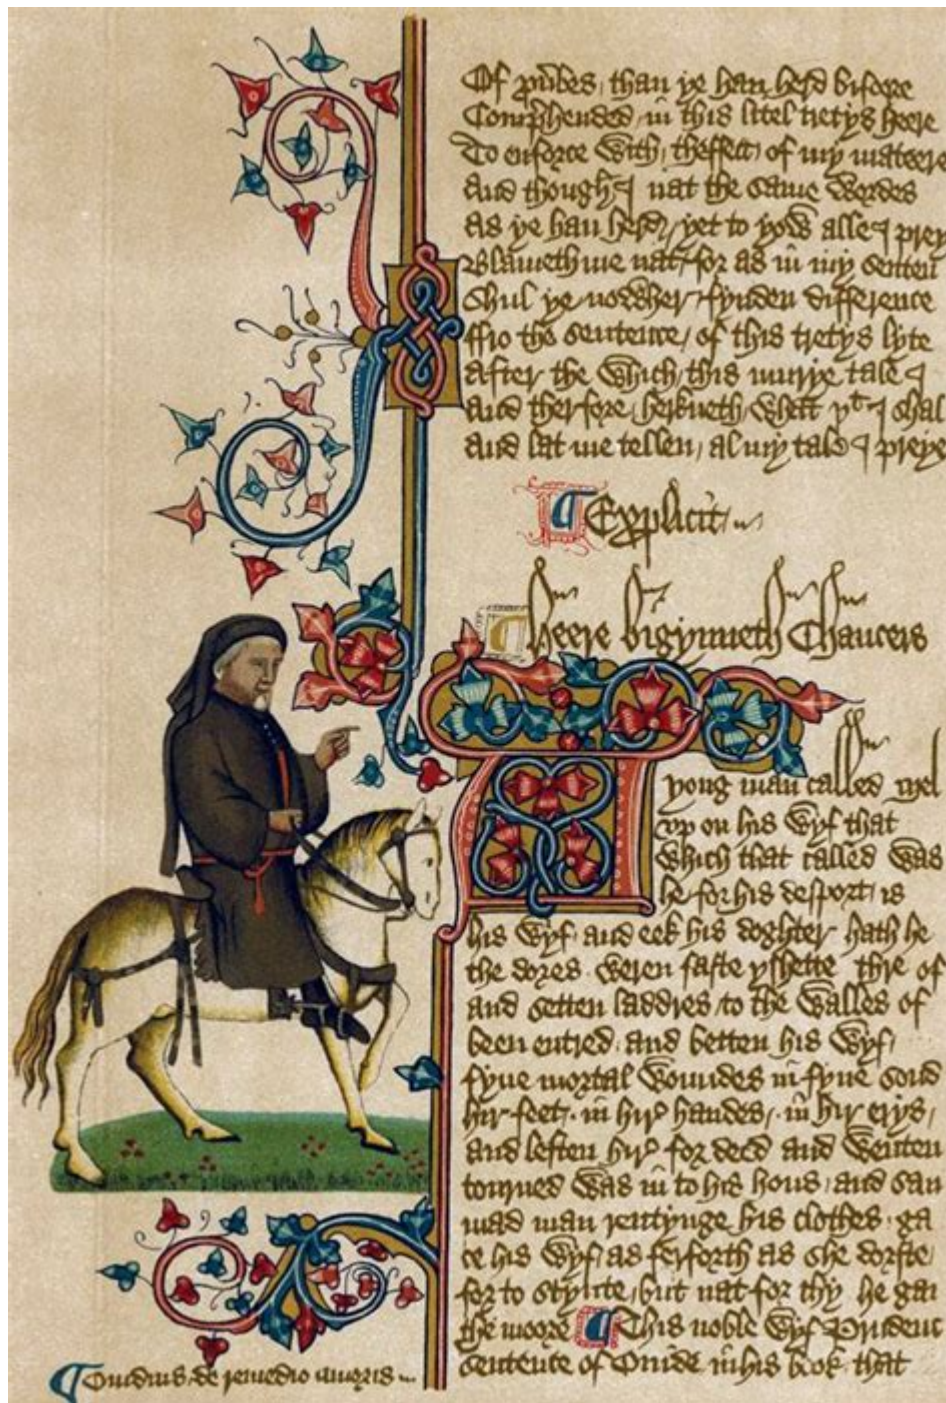 Of prủbes than ye han herd bifore
Comprehended in this litel tretys heere
To enforce with theffect of my mateere
And though I nat the same wordes
As ye han herd yet to yow alle I prey
Blameth me nat for as in my senten
Shul ye nowher fynden difference
ffro the sentence of this tretys lyte
After the which this murye tale I
And therfore herkneth what yt I shal
And lat me tellen al my tale I preye
Explicit
Heere bigynneth Chaucers
A
yong man called Mel
vp on his wyf that
which that called was
he for his desport is
his wyf and eek his doghter hath he
the dores weren faste yshette thre of
and setten laddres to the walles of
been entred and betten his wyf
fyue mortal woundes in fyue sond
hir feet in hir handes in hir erys
and leften hir for deed and wenten
tourned was in to his hous and sau
mad man rentynge his clothes ga
ce his wyf as ferforth as she dorste
for to stynte but nat for thy he gan
the moore This noble wyf Prudenc
sentence of Ouide in his book that
Ouidius de remedio amoris